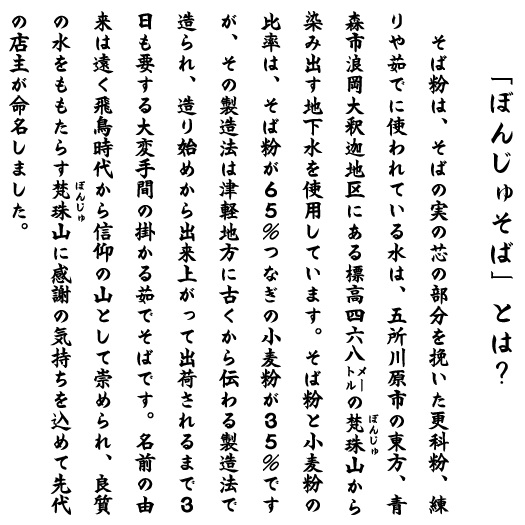 「ぼんじゅそば」とは？
そば粉は、そばの実の芯の部分を挽いた更科粉、練
りや茹でに使われている水は、五所川原市の東方、青
森市浪岡大釈迦地区にある標高四六八メートルの梵珠山から
ぼんじゅ
染み出す地下水を使用しています。そば粉と小麦粉の
比率は、そば粉が65%つなぎの小麦粉が35%です
が、その製造法は津軽地方に古くから伝わる製造法で
造られ、造り始めから出来上がって出荷されるまで3
日も要する大変手間の掛かる茹でそばです。名前の由
来は遠く飛鳥時代から信仰の山として崇められ、良質
の水をももたらす梵珠山に感謝の気持ちを込めて先代
ぼんじゅ
の店主が命名しました。